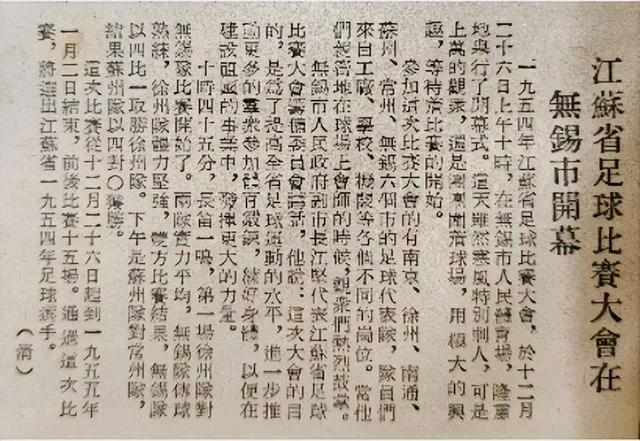 江蘇省足球比賽大會在
無錫市開幕
一九五四年江蘇省足球比賽大會，於十二月
二十六日上午十時，在無錫市人民體育場，隆重
地舉行了開幕式。這天雖然寒風特別刺人，可是
上萬的觀衆，還是團團圍着球場，用極大的興
趣，等待着比賽的開始。
參加這次比賽大會的有南京、徐州、南通、
蘇州、常州、無錫六個市的足球代表隊，隊員們
來自工廠、學校、機關等各個不同的崗位。當他
們整齊地在球場上會師的時候，觀衆們熱烈鼓掌。
無錫市人民政府副市長江堅代表江蘇省足球
比賽大會籌備委員會講話，他說：這次大會的目
的，是爲了提高全省足球運動的水平，進一步推
動更多的羣衆參加體育鍛鍊，練好身體，以便在
建設祖國的事業中，發揮更大的力量。
十時四十五分，長笛一鳴，第一場徐州隊對
無錫隊比賽開始了。兩隊實力平均，無錫隊傳球
熟練，徐州隊體力堅強，雙方比賽結果，無錫隊
以四比一取勝徐州隊。下午是蘇州隊對常州隊，
結果蘇州隊以四對〇獲勝。
這次比賽從十二月二十六日起到一九五五年
一月二日結束，前後比賽十五場。通過這次比
賽，將選出江蘇省一九五四年足球選手。
（清）